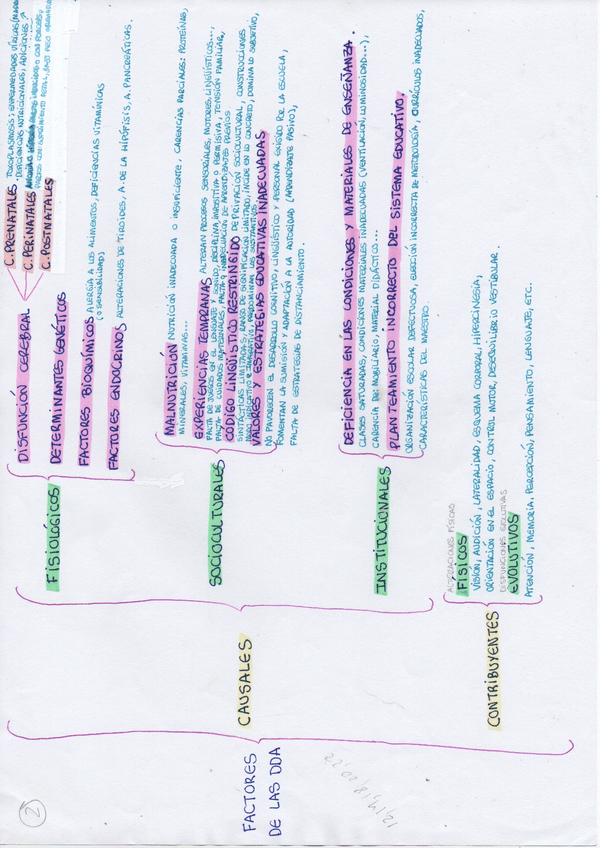 2
FACTORES
DE LAS DDA
12, 14, 18, 20, 22
CAUSALES
FISIOLÓGICOS
DISFUNCIÓN CEREBRAL
C. PRENATALES TOXOPLASMOSIS; ENFERMEDADES VÍRICAS
DEFICIENCIAS NUTRICIONALES, ADICIONES
C. PERINATALES
C. POSTNATALES
DETERMINANTES GENÉTICOS
FACTORES BIOQUÍMICOS ALERGIA A LOS ALIMENTOS, DEFICIENCIAS VITAMÍNICAS
(O SENSIBILIDAD)
FACTORES ENDOCRINOS ALTERACIONES DE TIROIDES, A. DE LA HIPÓFISIS, A. PANCREÁTICAS.
SOCIOCULTURALES
MALNUTRICIÓN NUTRICIÓN INADECUADA O INSUFICIENTE, CARENCIAS PARCIALES: PROTEÍNAS,
MINERALES, VITAMINAS...
EXPERIENCIAS TEMPRANAS ALTERAN PROCESOS SENSORIALES, MOTORES, LINGÜÍSTICOS...,
FALTA DE JUEGOS EN EL LENGUAJE Y SONIDO, DISCIPLINA IMPOSITIVA O PERMISIVA, TENSIÓN FAMILIAR,
FALTA DE CUIDADOS MATERIALES, FALTA O INADECUACIÓN DE APRENDIZAJES PREVIOS
CÓDIGO LINGÜÍSTICO RESTRINGIDO DEPRIVACIÓN SOCIOCULTURAL, CONSTRUCCIONES
SINTÁCTICAS LIMITADAS, RANGO DE SIGNIFICACIÓN LIMITADO, INCIDE EN LO CONCRETO, DOMINA LO SUBJETIVO,
MODO INDICATIVO E IMPERATIVO, PREDOMINAN LOS SUSTANTIVOS
VALORES Y ESTRATEGIAS EDUCATIVAS INADECUADAS
NO FAVORECEN EL DESARROLLO COGNITIVO, LINGÜÍSTICO Y PERSONAL EXIGIDO POR LA ESCUELA,
FOMENTAN LA SUMISIÓN Y ADAPTACIÓN A LA AUTORIDAD (APRENDIZAJE PASIVO),
FALTA DE ESTRATEGIAS DE DISTANCIAMIENTO.
INSTITUCIONALES
DEFICIENCIA EN LAS CONDICIONES Y MATERIALES DE ENSEÑANZA.
CLASES SATURADAS, CONDICIONES MATERIALES INADECUADAS (VENTILACIÓN, LUMINOSIDAD...),
CARENCIA DE: MOBILIARIO, MATERIAL DIDÁCTICO...
PLANTEAMIENTO INCORRECTO DEL SISTEMA EDUCATIVO.
ORGANIZACIÓN ESCOLAR DEFECTUOSA, ELECCIÓN INCORRECTA DE METODOLOGÍA, CURRÍCULOS INADECUADOS,
CARACTERÍSTICAS DEL MAESTRO.
CONTRIBUYENTES
ALTERACIONES FÍSICAS
FÍSICOS
VISIÓN, AUDICIÓN, LATERALIDAD, ESQUEMA CORPORAL, HIPERCINESIA,
ORIENTACIÓN EN EL ESPACIO, CONTROL MOTOR, DESEQUILIBRIO VESTIBULAR.
DISFUNCIONES EVOLUTIVAS
EVOLUTIVOS
ATENCIÓN, MEMORIA, PERCEPCIÓN, PENSAMIENTO, LENGUAJE, ETC.